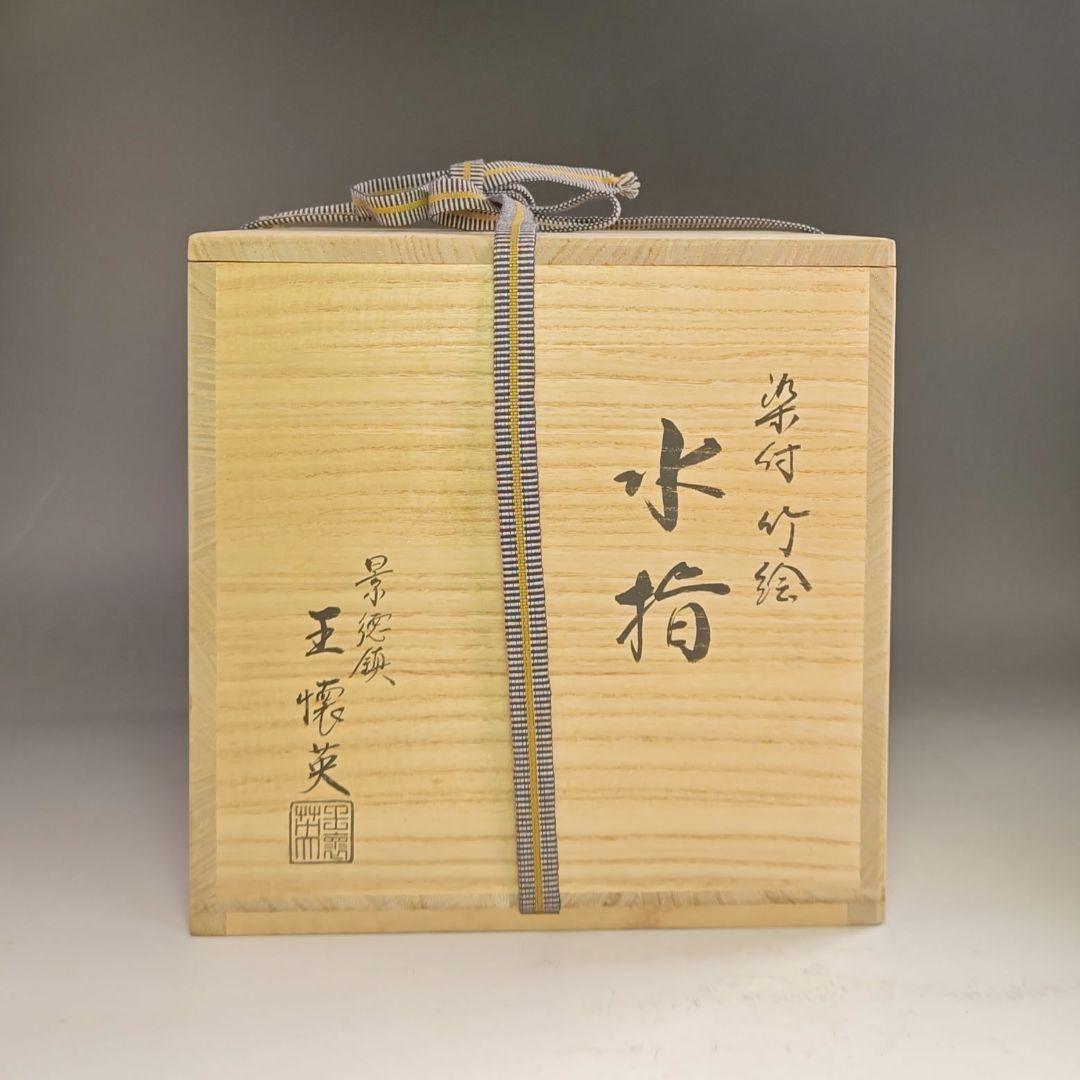 染付 竹絵
水指
景徳鎮
王懐英